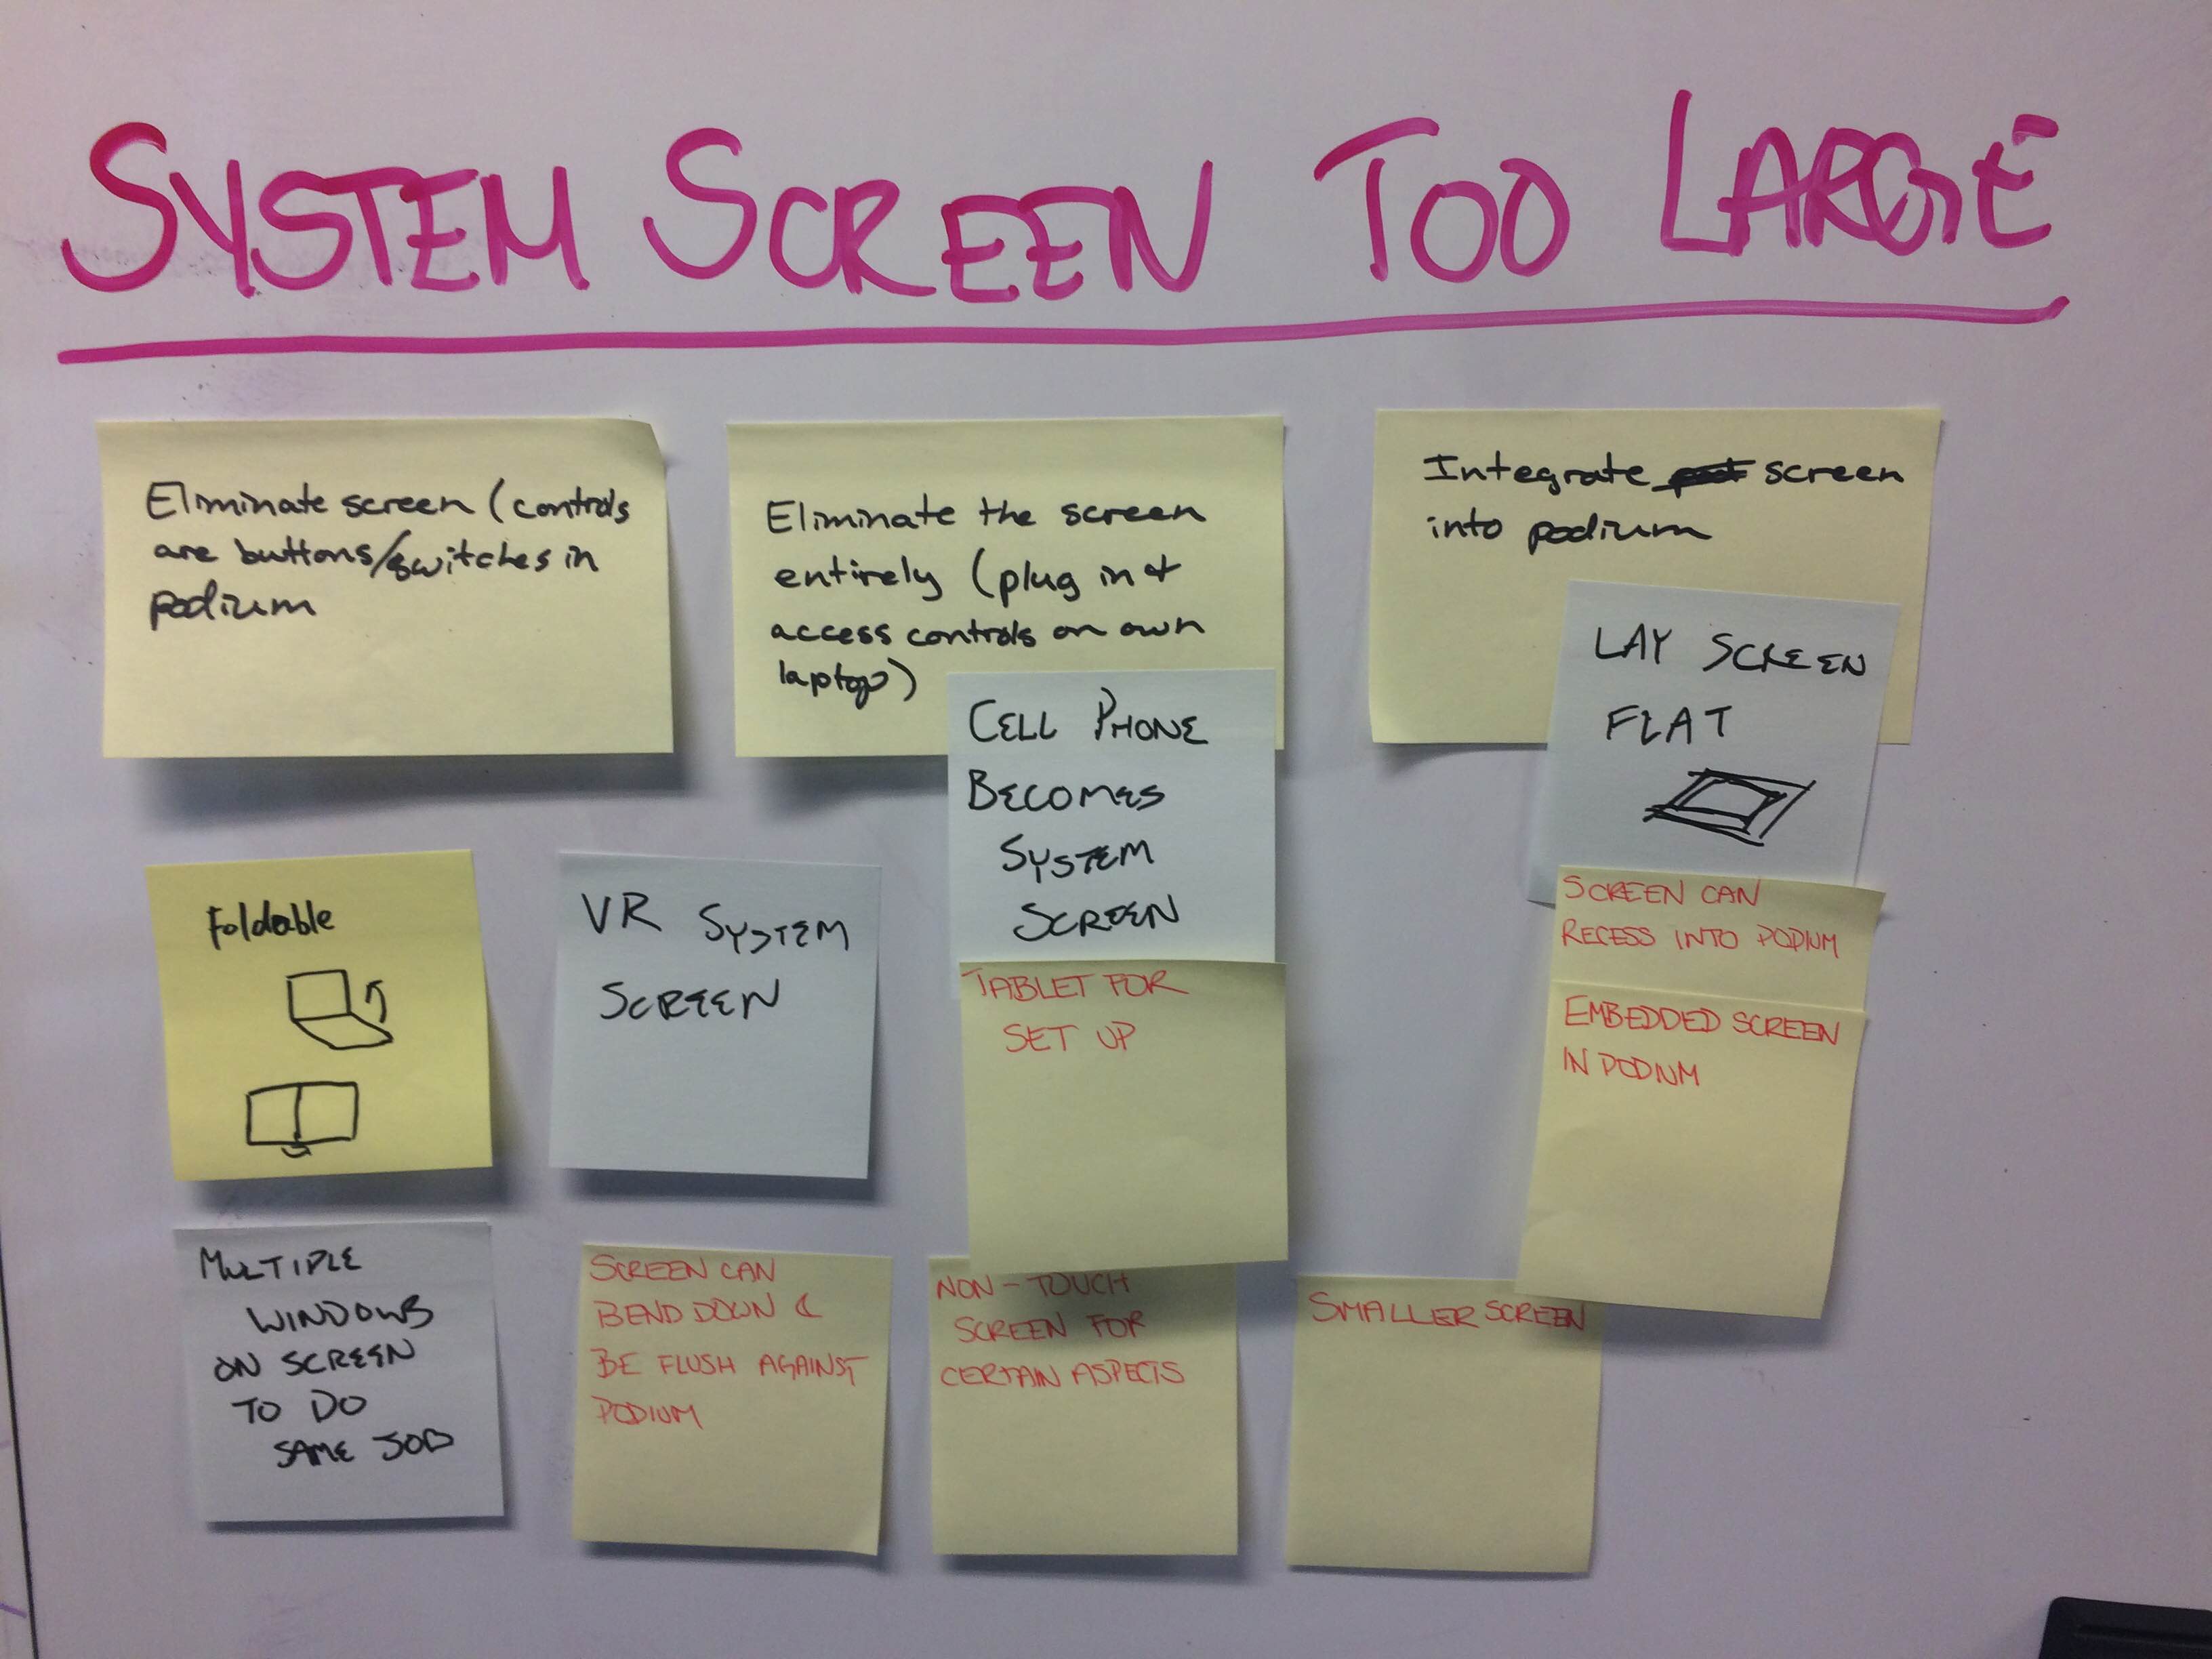 SYSTEM SCREEN TOO LARGE
Eliminate screen (controls
are buttons/switches in
podium
Eliminate the screen
entirely (plug in &
access controls on own
laptop)
Integrate screen
into podium
CELL PHONE
BECOMES
SYSTEM
SCREEN
LAY SCREEN
FLAT
Foldable
VR SYSTEM
SCREEN
TABLET FOR
SET UP
SCREEN CAN
RECESS INTO PODIUM
EMBEDDED SCREEN
IN PODIUM
MULTIPLE
WINDOWS
ON SCREEN
TO DO
SAME JOB
SCREEN CAN
BEND DOWN &
BE FLUSH AGAINST
PODIUM
NON-TOUCH
SCREEN FOR
CERTAIN ASPECTS
SMALLER SCREEN